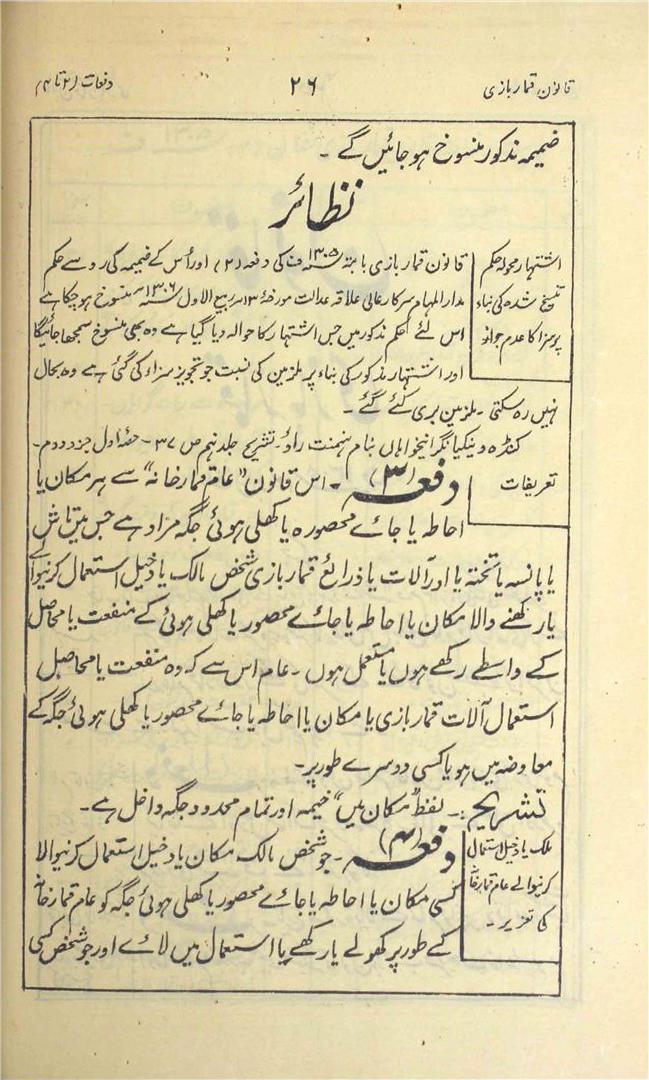 قانون قمار بازی
۲۶
دفعات (۲ تا ۴)
ضمیمہ مذکور منسوخ ہو جائیں گے ۔
نظائر
اشتہار محولہ حکم
تنسیخ شدہ کی بناء
پر سزا کا عدم جواز
قانون قمار بازی بابتہ ۱۳۰۵ ف کی دفعہ (۲) اور اُس کے ضمیمہ کی رو سے حکم
مدار المہام سرکار عالی علاقہ عدالت مورخۂ ۱۳ ربیع الاول ۱۳۰۶ منسوخ ہو چکا ہے
اس لئے حکم مذکور میں جس اشتہار کا حوالہ دیا گیا ہے وہ بھی منسوخ سمجھا جائیگا
اور اشتہار مذکور کی بناء پر ملزمین کی نسبت جو تجویز سزاء کی گئی ہے وہ بحال
نہیں رہ سکتی ۔ ملزمین بری کئے گئے ۔
نگرانیخواہاں بنام ہنمنت راؤ ۔ تشریح جلد نہم ص ۳۷ ۔ حصۂ اول جزو دوم ۔
تعریفات
دفعہ (۳) ۔ اس قانون "عام قمار خانہ" سے ہر مکان یا
احاطہ یا جائے محصورہ یا کھلی ہوئی جگہ مراد ہے جس میں تاش
یا پانسہ یا تختہ یا اور آلات یا ذرائع قمار بازی شخص مالک یا دخیل استعمال کرنیوالے
یا رکھنے والا مکان یا احاطہ یا جائے محصور یا کھلی ہوئی کے منفعت یا محاصل
کے واسطے رکھے ہوں یا مستعمل ہوں ۔ عام اس سے کہ وہ منفعت یا محاصل
استعمال آلات قمار بازی یا مکان یا احاطہ یا جائے محصور یا کھلی ہوئی جگہ کے
معاوضہ میں ہو یا کسی دوسرے طور پر ۔
تشریح :۔ لفظ "مکان میں" خیمہ اور تمام محدود جگہ داخل ہے ۔
ملک یا دخیل استعمال
کرنیوالے عام قمار خانہ
کی تعزیر ۔
دفعہ (۴) ۔ جو شخص مالک مکان یا دخیل استعمال کرنیوالا
کسی مکان یا احاطہ یا جائے محصور یا کھلی ہوئی جگہ کو عام قمار خانہ
کے طور پر کھولے یا رکھے یا استعمال میں لائے اور جو شخص کسی